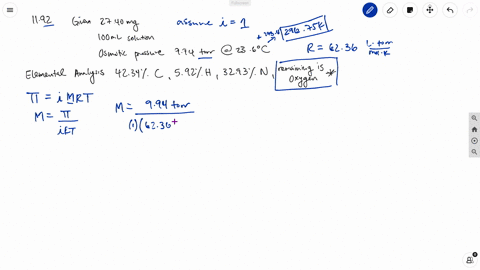 11.92 Given 27.40 mg assume i = 1
100mL solution
Osmotic pressure 9.94 torr @ 23.6°C 296.75K R = 62.36 L·torr/mol·K
Elemental Analysis 42.34% C, 5.92% H, 32.93% N, remaining is oxygen
Π = iMRT
M = Π/iRT
M = 9.94 torr/(1)(62.36